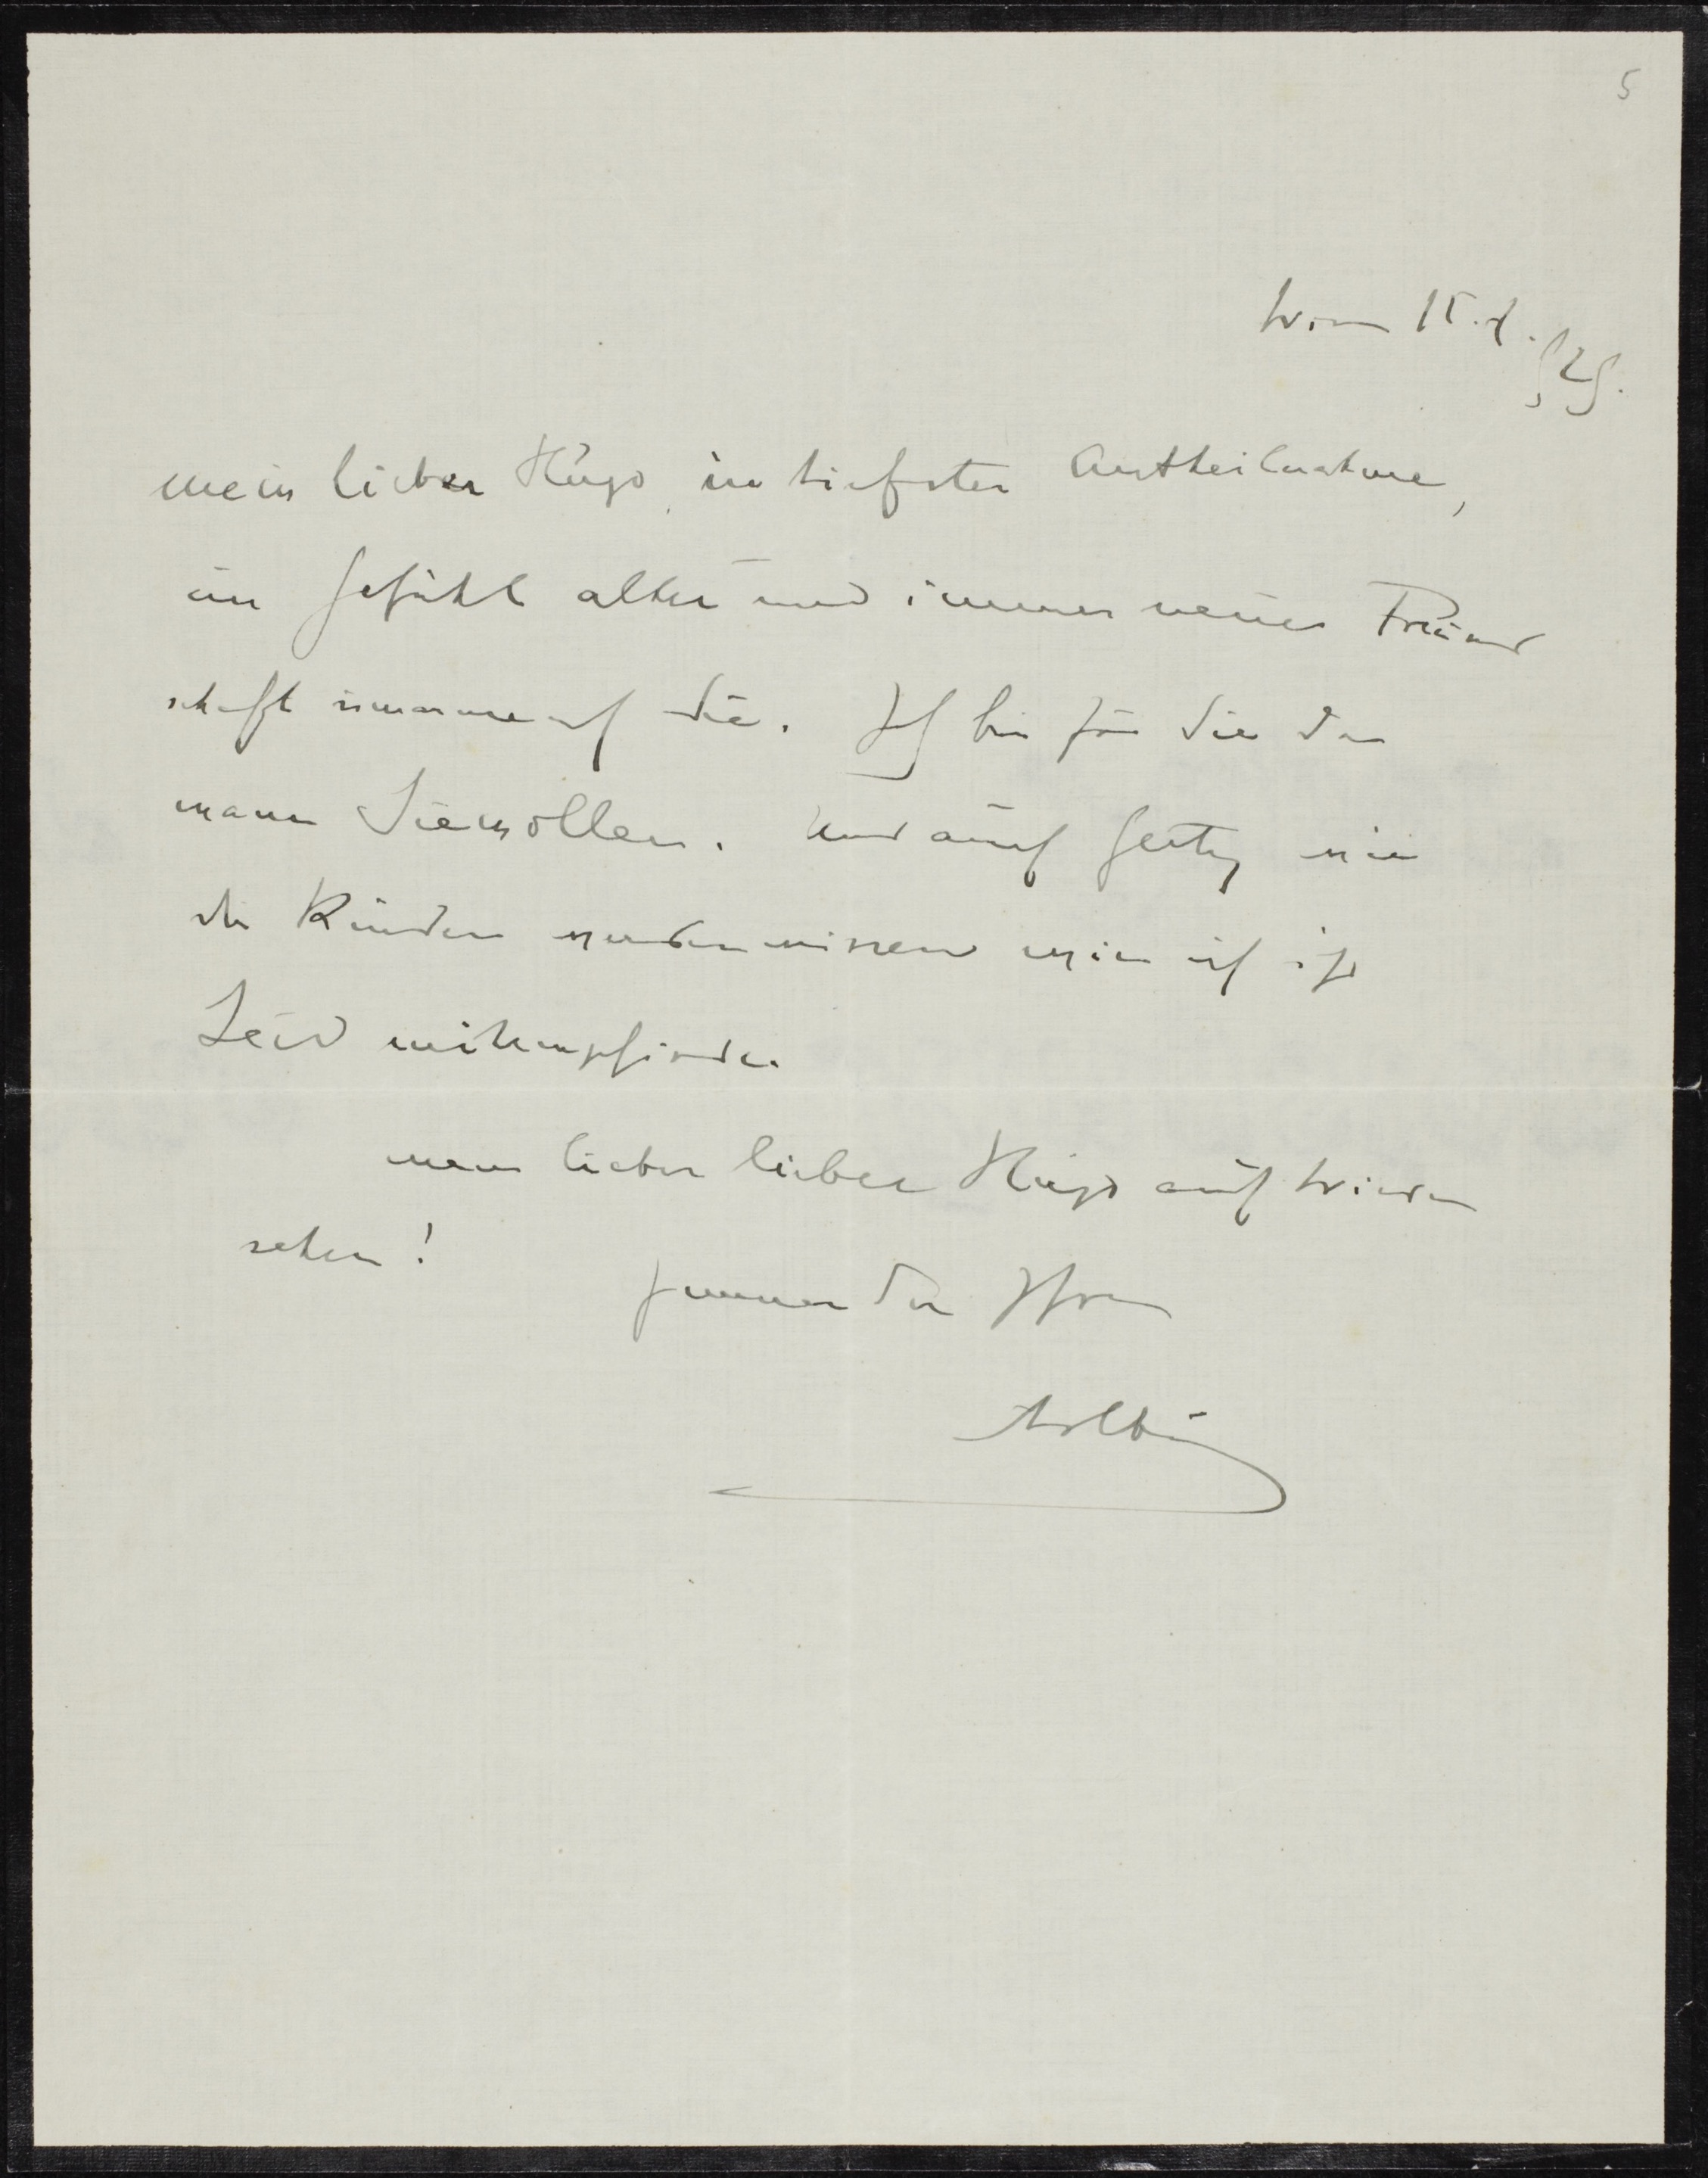 5
Wien 15. 7.
929.
mein lieber Hugo, in tiefster Antheilnahme,
im Gefühl alter und immer neuer Freund
schaft umarme ich Sie. Ich bin für Sie da
wann Sie wollen. Und auch Gerty wie
die Kinder werden wissen wie ich ihr
Leid mitempfinde.
mein lieber lieber Hugo auf Wieder
sehen!
Immer der Ihre
Arthur